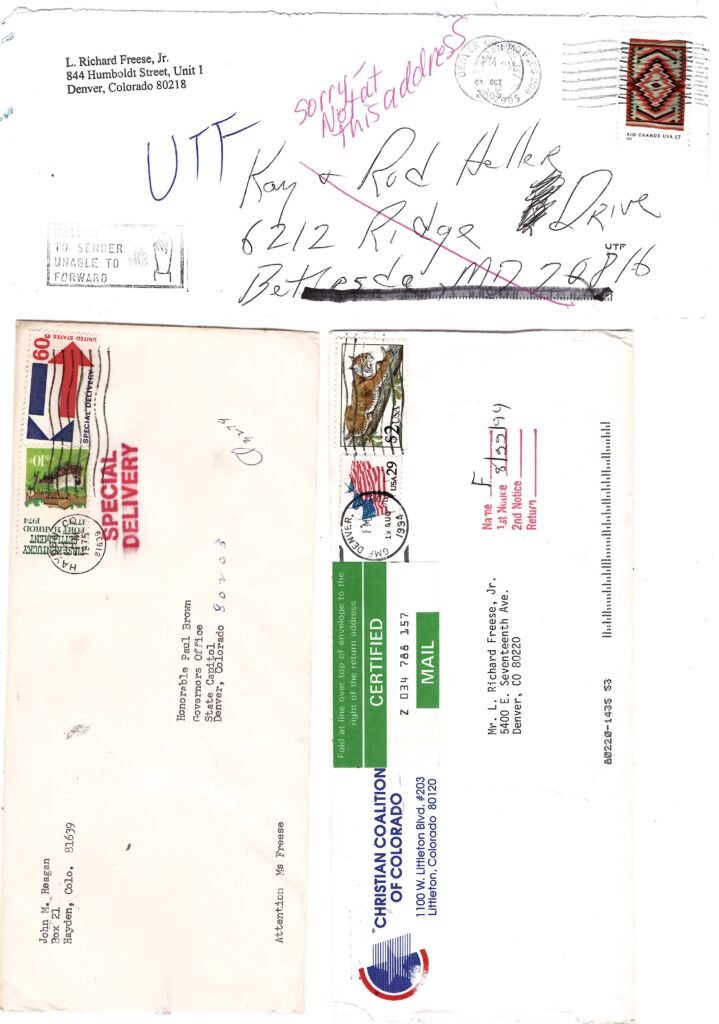 L. Richard Freese, Jr.
844 Humboldt Street, Unit 1
Denver, Colorado 80218
sorry-
Not at
this address
DENVER CO
PM
OCT
RIO GRANDE USA 37
UTF
Kay & Rod Heller
6212 Ridge Drive
UTF
Bethesda MD 20816
TO SENDER
UNABLE TO
FORWARD
60c
UNITED STATES
SPECIAL DELIVERY
10c
FIRST KENTUCKY
SETTLEMENT
FORT HARROD
1774 1974
1975
81639
SPECIAL
DELIVERY
Honorable Paul Brown
Governors Office
State Capitol
Denver, Colorado 80203
John M. Reagan
Box 21
Hayden, Colo. 81639
Attention Ms Freese
$2 USA
USA 29
GMF DENVER,
19 AUG
1994
Name F
1st Notice 8/22/94
2nd Notice
Return
Fold at line over top of envelope to the
right of the return address
CERTIFIED
Z 034 788 157
MAIL
Mr. L. Richard Freese, Jr.
5400 E. Seventeenth Ave.
Denver, CO 80220
80220-1435 53
CHRISTIAN COALITION
OF COLORADO
1100 W. Littleton Blvd. #203
Littleton, Colorado 80120